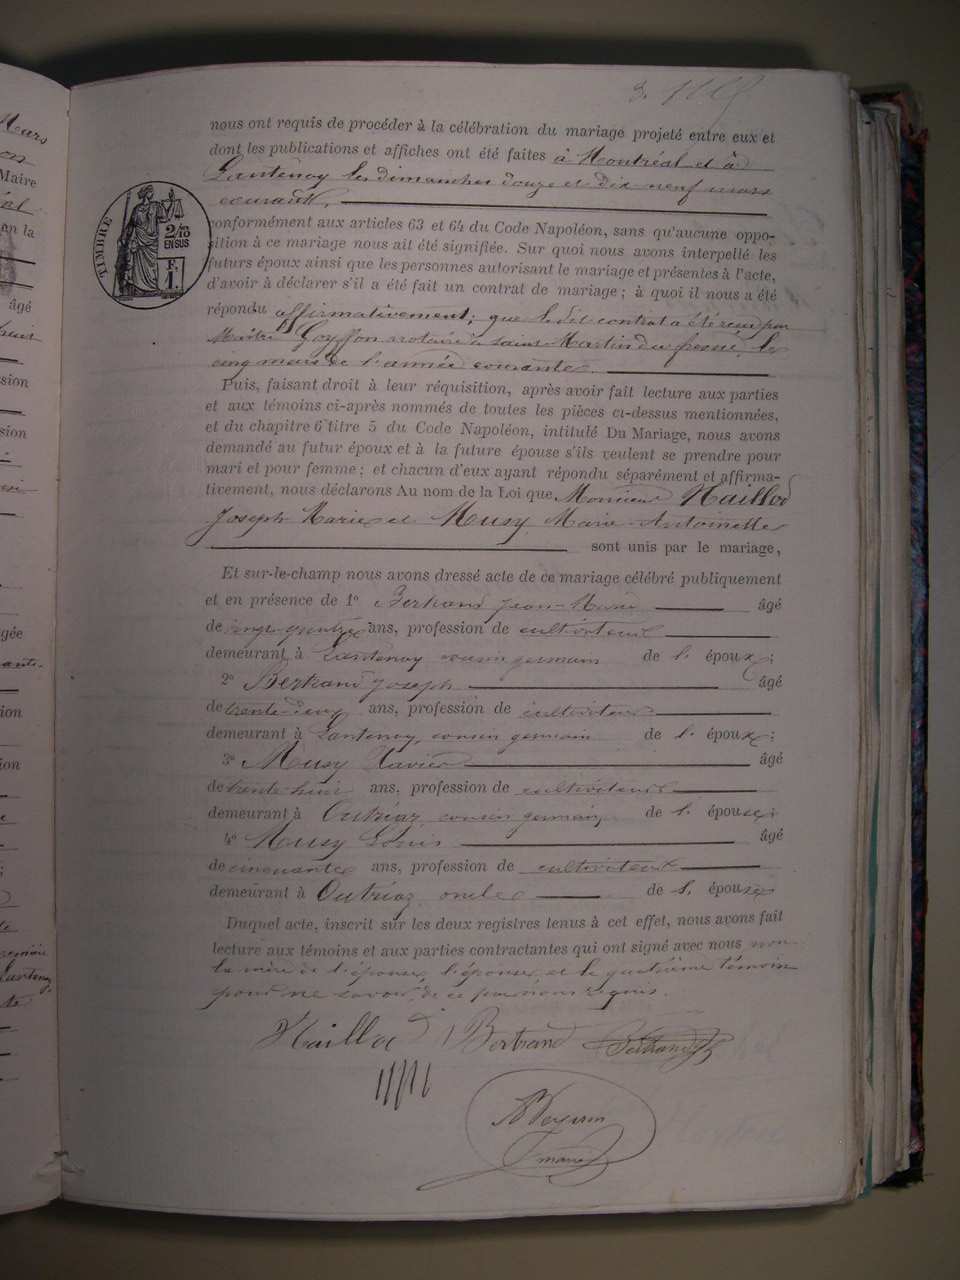 nous ont requis de procéder à la célébration du mariage projeté entre eux et
dont les publications et affiches ont été faites à Montréal et à
Lantenay les dimanches douze et dix-neuf mars
courant,
conformément aux articles 63 et 64 du Code Napoléon, sans qu'aucune oppo-
sition à ce mariage nous ait été signifiée. Sur quoi nous avons interpellé les
futurs époux ainsi que les personnes autorisant le mariage et présentes à l'acte,
d'avoir à déclarer s'il a été fait un contrat de mariage ; à quoi il nous a été
répondu affirmativement; que le dit contrat a été reçu par
Maître Goyffon notaire à Saint Martin du fresne, le
cinq mars de l'année courante.
TIMBRE
2/10
EN SUS
F.
1.
Puis, faisant droit à leur réquisition, après avoir fait lecture aux parties
et aux témoins ci-après nommés de toutes les pièces ci-dessus mentionnées,
et du chapitre 6 titre 5 du Code Napoléon, intitulé Du Mariage, nous avons
demandé au futur époux et à la future épouse s'ils veulent se prendre pour
mari et pour femme ; et chacun d'eux ayant répondu séparément et affirma-
tivement, nous déclarons Au nom de la Loi que Monsieur Maillod
Joseph Marie et Musy Marie-Antoinette
sont unis par le mariage,
Et sur-le-champ nous avons dressé acte de ce mariage célébré publiquement
et en présence de 1° Bertrand Jean-Marie âgé
de ans, profession de cultivateur
demeurant à Lantenay cousin germain de l'époux ;
2° Bertrand Joseph âgé
de trente-deux ans, profession de cultivateur
demeurant à Lantenay, cousin germain de l'époux ;
3° Musy Xavier âgé
de trente huit ans, profession de cultivateur
demeurant à Outriaz, cousin germain, de l'épouse ;
4° Musy Louis âgé
de cinquante ans, profession de cultivateur
demeurant à Outriaz, oncle de l'épouse
Duquel acte, inscrit sur les deux registres tenus à cet effet, nous avons fait
lecture aux témoins et aux parties contractantes qui ont signé avec nous non
la mère de l'épouse, l'épouse, et le quatrième témoin
pour ne savoir, de ce par nous requis.
Maillod Bertrand Bertrand
maire